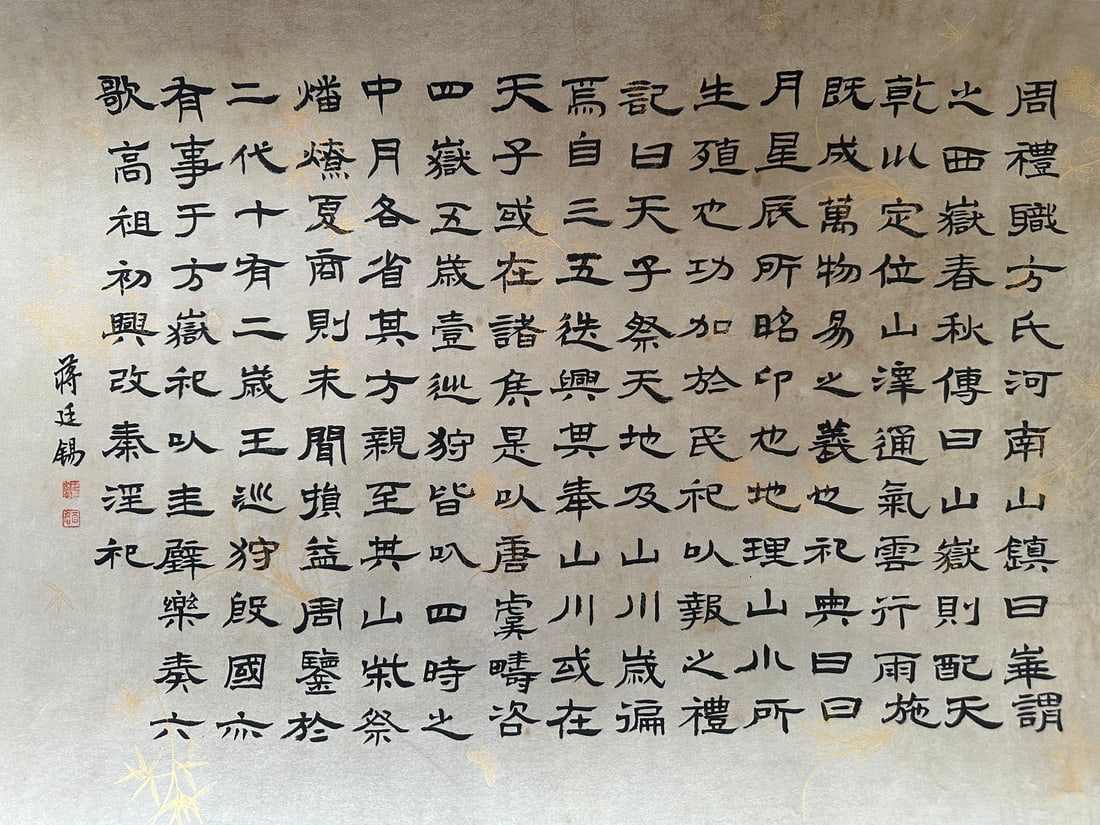 周禮職方氏河南山鎮曰崋謂
之西嶽春秋傳曰山嶽則配天
乾以定位山澤通氣雲行雨施
既成萬物易之義也祀典曰曰
月星辰所昭卬也地理山川所
生殖也功加於民祀以報之禮
記曰天子祭天地及山川歲徧
焉自三五迭興其奉山川或在
天子或在諸矦是以唐虞疇咨
四嶽五歲壹巡狩皆以四時之
中月各省其方親至其山柴祭
燔燎夏商則未聞損益周鑒於
二代十有二歲王巡狩殷國亦
有事于方嶽祀以圭璧樂奏六
歌高祖初興改秦淫祀
蔣廷錫